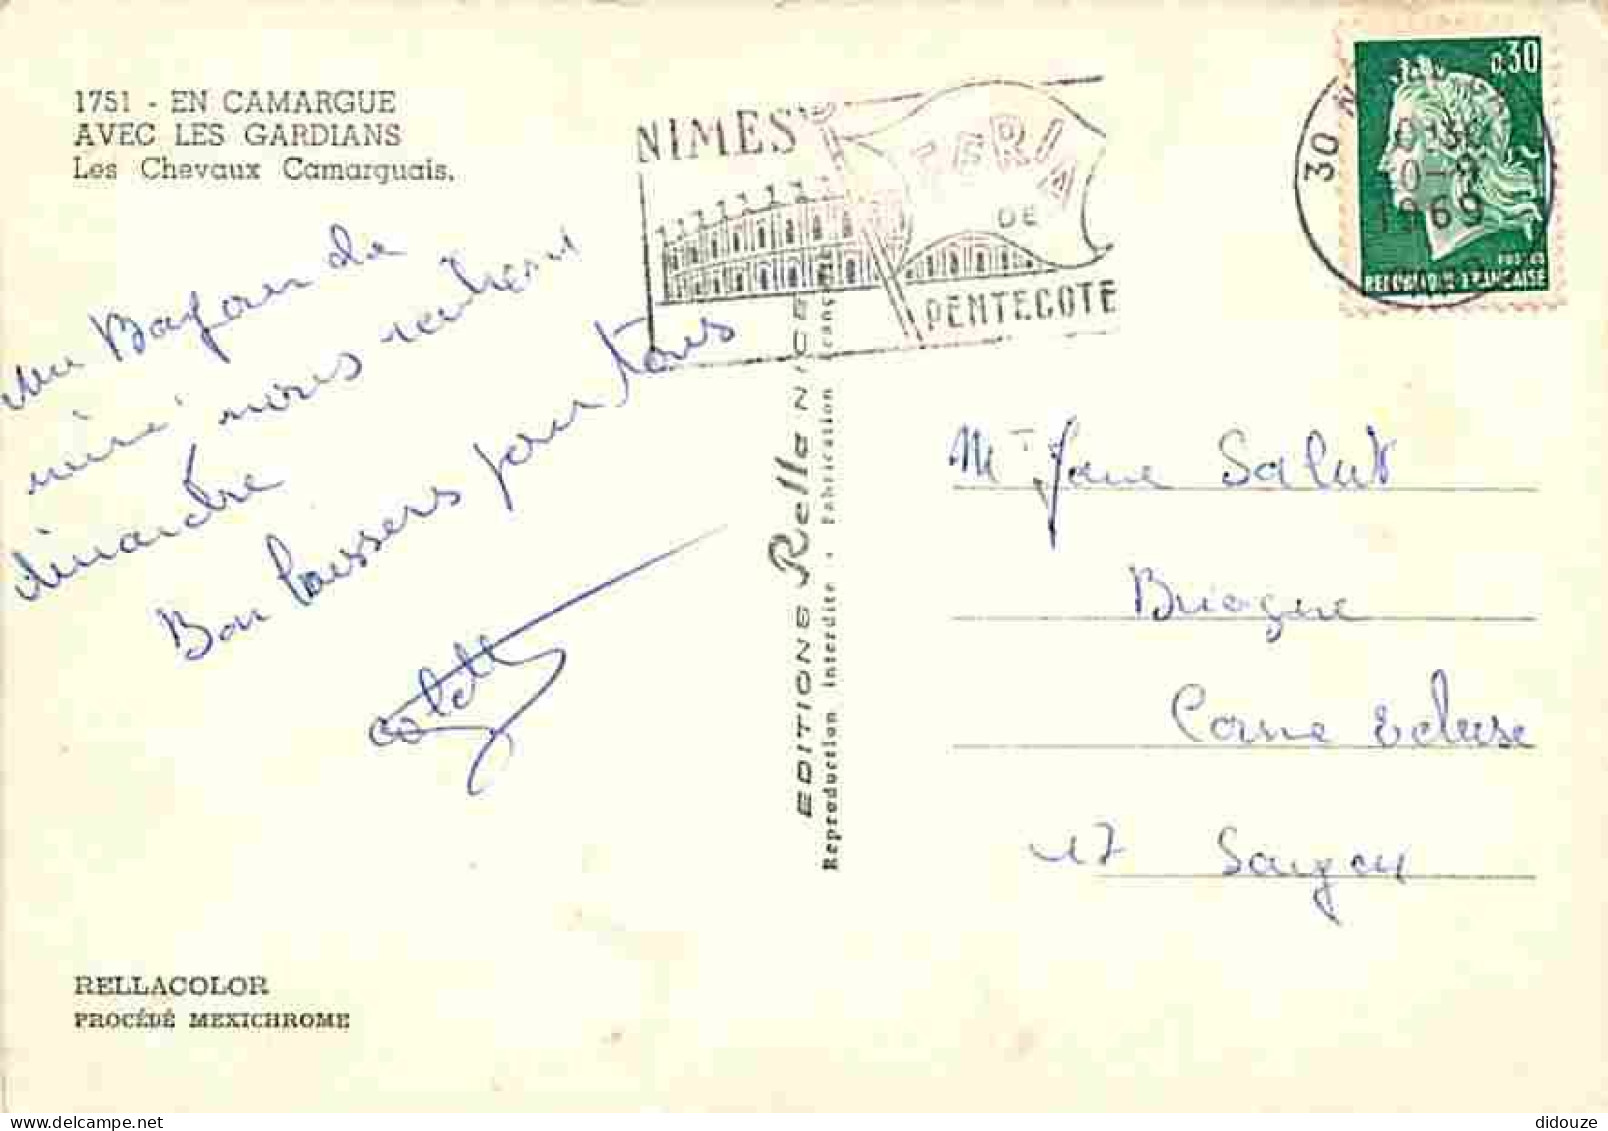 1751 - EN CAMARGUE
AVEC LES GARDIANS
Les Chevaux Camarguais.
NIMES
FERIA
DE
PENTECOTE
30 N
10-9
1969
0,30
POSTES
REPUBLIQUE FRANÇAISE
de
nous rentrons
dimanche
Bon baisers pour tous
Colette
EDITIONS Rella NICE
Reproduction interdite - Fabrication française
Jane Salut
Corme Ecluse
17
RELLACOLOR
PROCÉDÉ MEXICHROME
didouze